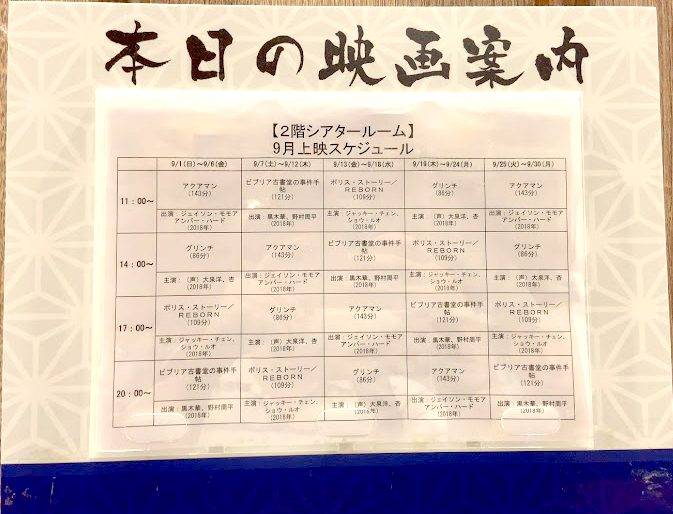 本日の映画案内
【2階シアタールーム】
9月上映スケジュール
9/1(日)～9/6(金) 9/7(土)～9/12(木) 9/13(金)～9/18(水) 9/19(木)～9/24(月) 9/25(火)～9/30(月)
11：00～
アクアマン
(143分)
出演：ジェイソン・モモア
アンバー・ハード
(2018年)
ビブリア古書堂の事件手
帖
(121分)
出演：黒木華、野村周平
(2018年)
ポリス・ストーリー／
ＲＥＢＯＲＮ
(109分)
主演：ジャッキー・チェン、
ショウ・ルオ
(2018年)
グリンチ
(86分)
主演：（声）大泉洋、杏
(2018年)
アクアマン
(143分)
出演：ジェイソン・モモア
アンバー・ハード
(2018年)
14：00～
グリンチ
(86分)
主演：（声）大泉洋、杏
(2018年)
アクアマン
(143分)
出演：ジェイソン・モモア
アンバー・ハード
(2018年)
ビブリア古書堂の事件手
帖
(121分)
出演：黒木華、野村周平
(2018年)
ポリス・ストーリー／
ＲＥＢＯＲＮ
(109分)
主演：ジャッキー・チェン、
ショウ・ルオ
(2018年)
グリンチ
(86分)
主演：（声）大泉洋、杏
(2018年)
17：00～
ポリス・ストーリー／
ＲＥＢＯＲＮ
(109分)
主演：ジャッキー・チェン、
ショウ・ルオ
(2018年)
グリンチ
(86分)
主演：（声）大泉洋、杏
(2018年)
アクアマン
(143分)
出演：ジェイソン・モモア
アンバー・ハード
(2018年)
ビブリア古書堂の事件手
帖
(121分)
出演：黒木華、野村周平
(2018年)
ポリス・ストーリー／
ＲＥＢＯＲＮ
(109分)
主演：ジャッキー・チェン、
ショウ・ルオ
(2018年)
20：00～
ビブリア古書堂の事件手
帖
(121分)
出演：黒木華、野村周平
(2018年)
ポリス・ストーリー／
ＲＥＢＯＲＮ
(109分)
主演：ジャッキー・チェン、
ショウ・ルオ
(2018年)
グリンチ
(86分)
主演：（声）大泉洋、杏
(2018年)
アクアマン
(143分)
出演：ジェイソン・モモア
アンバー・ハード
(2018年)
ビブリア古書堂の事件手
帖
(121分)
出演：黒木華、野村周平
(2018年)